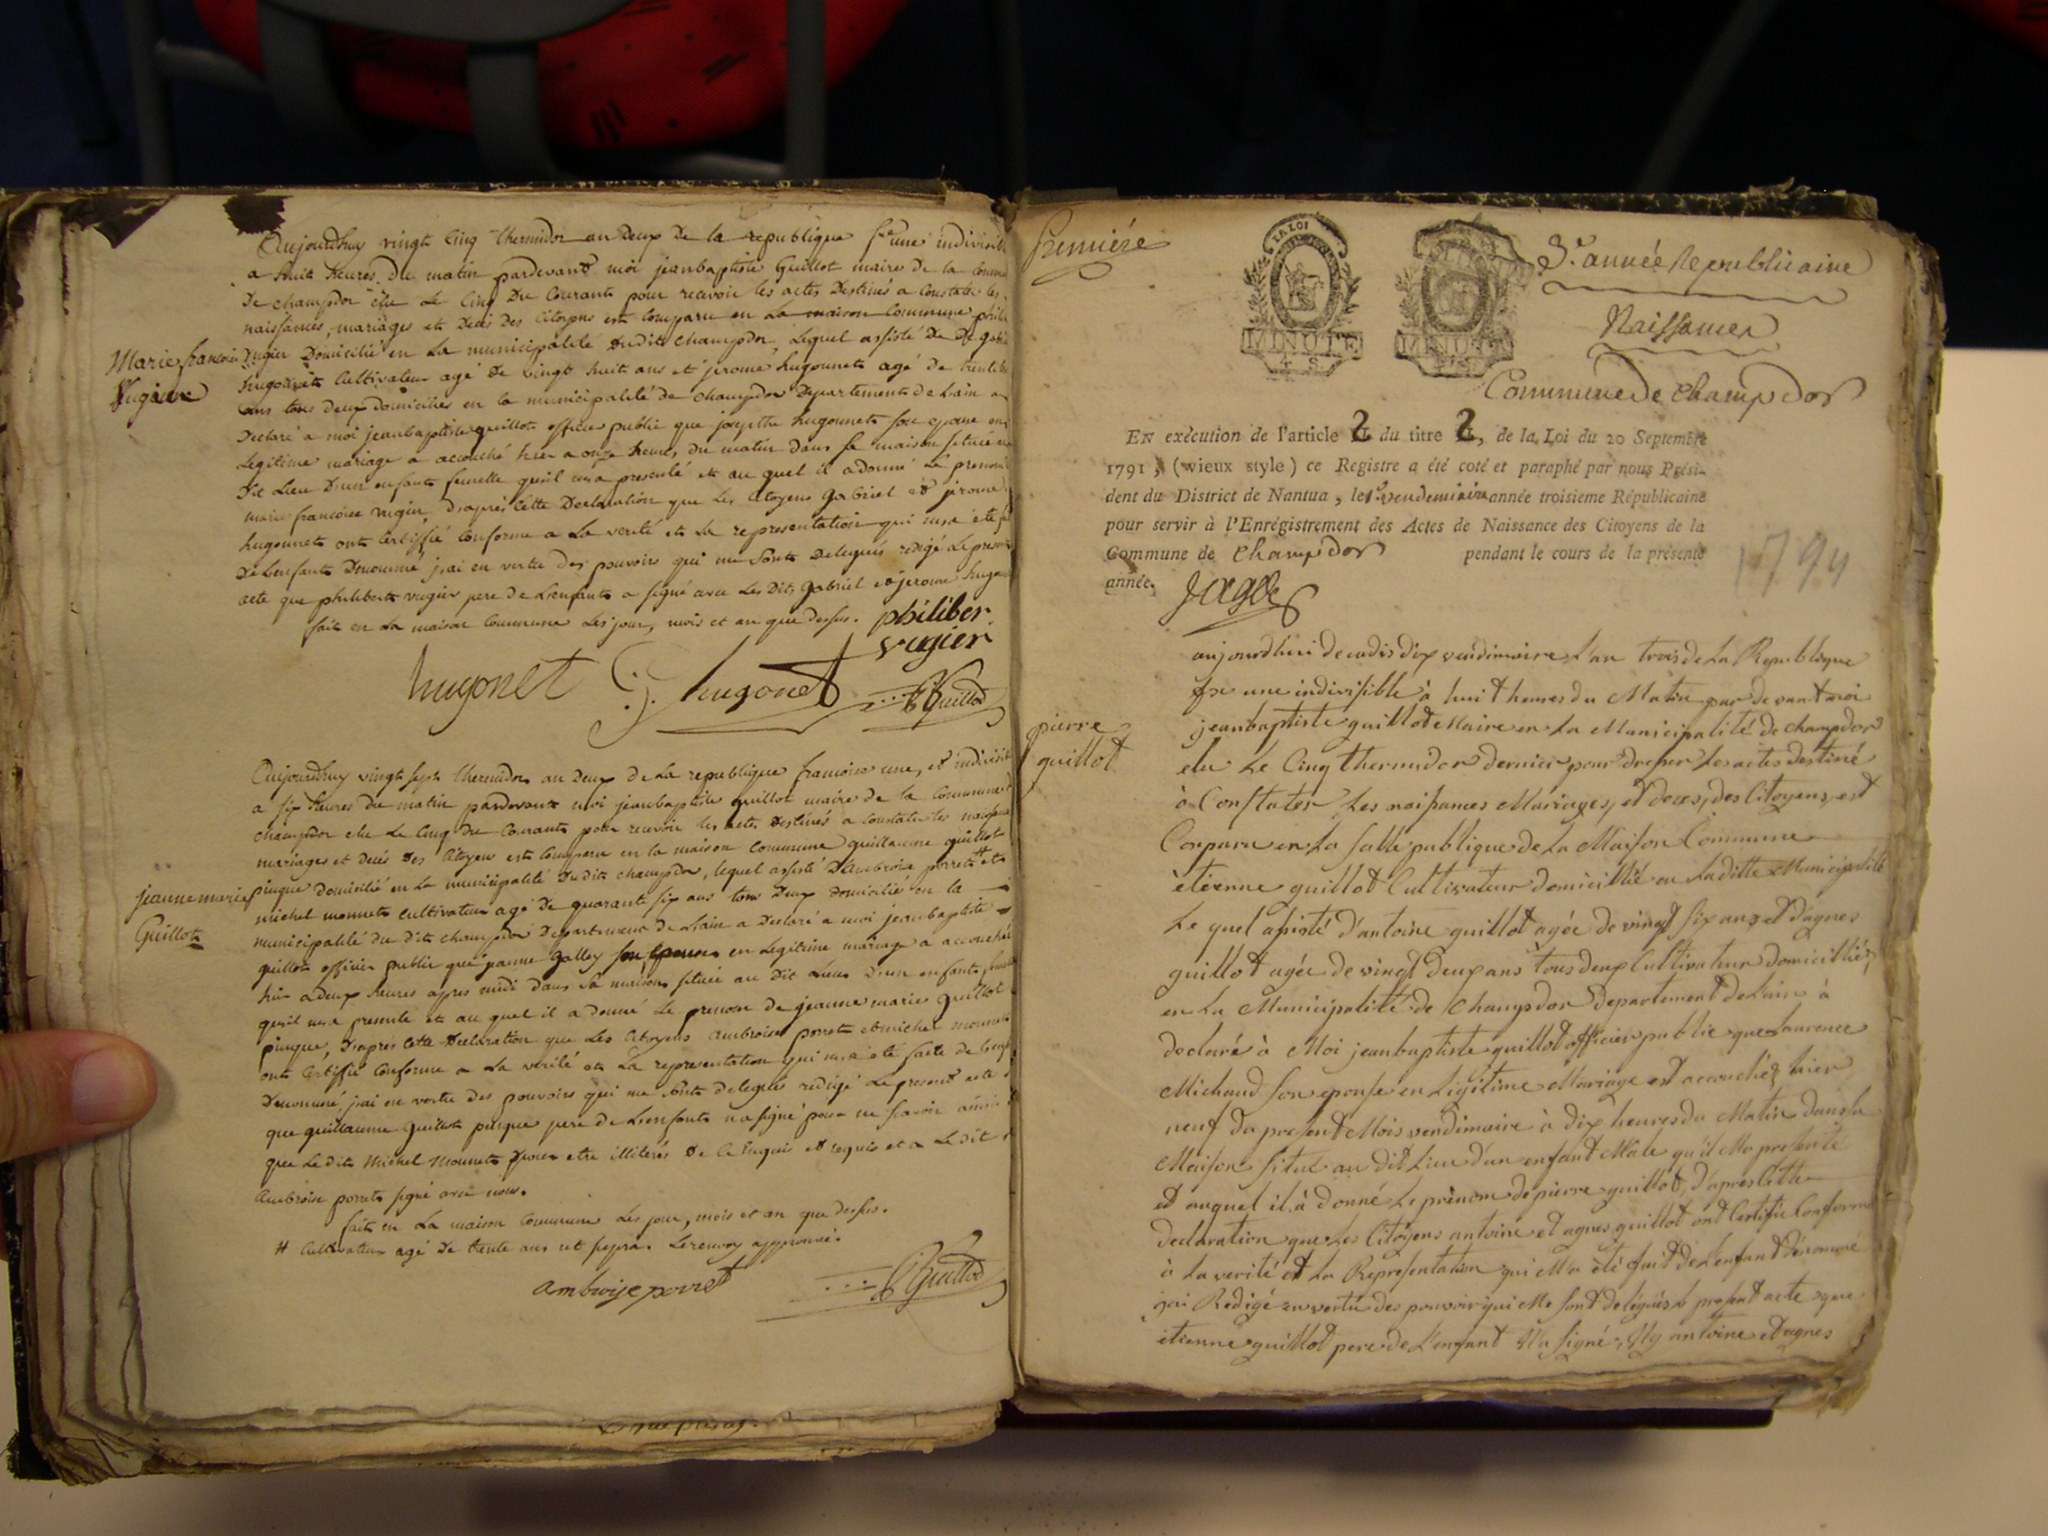 Aujourdhuy vingt Cinq Thermidor an Deux De la republique f.se une indivisib
a huit heures du matin pardevant moi jeanbaptiste Guillot maire de la Commu
De champdor élu Le Cinq Du Courant pour recevoir les actes Destinés a Constater les
naissances, mariages et Deces Des Citoyens est Comparu en La maison Commune phili
Vugier Domicilié en La municipalité Dudit Champdor, Lequel assisté De
hugonnet Cultivateur agé De vingt huit ans et jerome hugonnet agé de
ans tous deux domiciliés en la municipalité de Champdor Departement de Lain a
Declaré a moi jeanbaptiste guillot officier public que josepthe hugonnet son epouse en
Legitime mariage a accouché hier a onze heures du matin dans sa maison située au
Dit Lieu D'un enfant femelle quil ma presenté et au quel il a donné Le prenom
marie francoise vugier, D'après Cette Declaration que Les Citoyens gabriel et jerome
hugonnet ont Certiffié Conforme a La verité et La representation qui ma été f
De Lenfant Denommé, jai en vertu Des pouvoirs qui me sont Delegués redigé Le present
acte que philibert vugier pere de Lenfant a signé avec Les Dits gabriel et jerome hugo
fait en La maison Commune Les jour, mois et an que Dessus. philiber
vugier
Marie francoise
Vugier
hugonet G hugonet Guillot
Aujourdhuy vingt sept thermidor an Deux de La republique francoise une, et indivisib
a six heures du matin pardevant moi jeanbaptiste guillot maire de la Commune
champdor elu Le Cinq Du Courant pour recevoir les actes Destinés a Constater les naissa
mariages et Decés Des Citoyens est Comparu en la maison Commune guillaume guillot
pinque domicilié en La municipalité Dudit champdor, lequel assisté D'ambroise porret #
michel monnet cultivateur agé De quarante six ans tous Deux Domiciliés en la
municipalité du Dit champdor Departement de Laine a Declaré a moi jeanbaptiste
guillot officier public que jeanne galley son epouse en Legitime mariage a accouché
hier a deux heures apres midi dans sa maison située au Dit Lieu D'un enfant
quil ma presenté et au quel il a donné Le prenom de jeanne marie guillot
pinque, D'après Cette Declaration que Les Citoyens ambroise porret et michel monnet
ont Certiffié Conforme a La verité et La representation qui ma été faite de Lenf
Denommé, jai en vertu des pouvoirs qui me sont delegués redigé Le present acte
que guillaume guillot pinque pere de Lenfant na signé pour ne savoir ainsi
que Le dit michel monnet pour etre illiterés De Ce Enquis et requis et a Le Dit
ambroise porret signé avec nous.
fait en La maison Commune Les jour, mois et an que dessus.
# Cultivateur agé De trente ans Le renvoy approuvé.
jeanne marie
Guillot
ambroise porret Guillot
Première
LA LOI
MINUTE
4 S
MINUTE
3e année Republicaine
Naissances
Commune de Champdor
EN exécution de l'article 2 du titre 2, de la Loi du 20 Septembre
1791, (wieux style) ce Registre a été coté et paraphé par nous Prési-
dent du District de Nantua, le 1er vendemiaire année troisieme Républicaine
pour servir à l'Enrégistrement des Actes de Naissance des Citoyens de la
Commune de Champdor pendant le cours de la présente
année.
1794
aujourdhui decadis dix vendimaire L'an trois de La Republique
fse une indivisible à huit heures du Matin par devant moi
jeanbaptiste guillot Maire en La Municipalité de Champdor
elu Le Cinq thermidor dernier pour dresser Les actes destiné
à Constater Les naissances Mariages, et deces, des Citoyens, est
Comparu en La salle publique de La Maison Commune
etienne guillot Cultivateur domicillié en Laditte Municipalité
Le quel assisté d'antoine guillot agée de vingt six ans et d'agnes
guillot agée de vingt deux ans tous deux Cultivateur domicilliés
en La Municipalité de Champdor departement de Lain à
declaré à Moi jeanbaptiste guillot officier public que Laurence
Michaud son epouse en Légitime Mariage est accouchée hier
neuf du present Mois vendimaire à dix heures du Matin dans sa
Maison situé au dit Lieu d'un enfant Male qu'il Ma presenté
et auquel il à donné Le prénom de pierre guillot, d'apres Cette
declaration que Les Citoyens antoine et agnes guillot ont Certifié Conforme
à La verité et La Representation qui Ma été fait de L'enfant dénommé
jai Redigé en vertu des pouvoir qui Me sont delégués Le present acte que
etienne guillot pere de L'enfant Na signé, Ny antoine et agnes
pierre
guillot